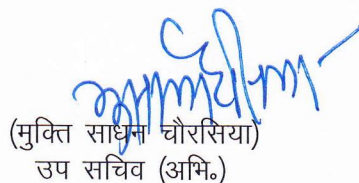 (मुक्ति साधन चौरसिया)
उप सचिव (अभि॰)